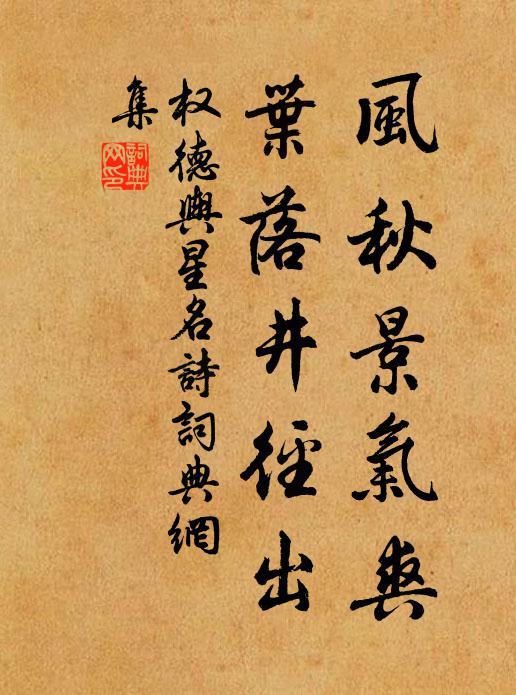 風秋景氣爽
葉落井徑出
权德輿星名詩詞典網
集
詞典
网印